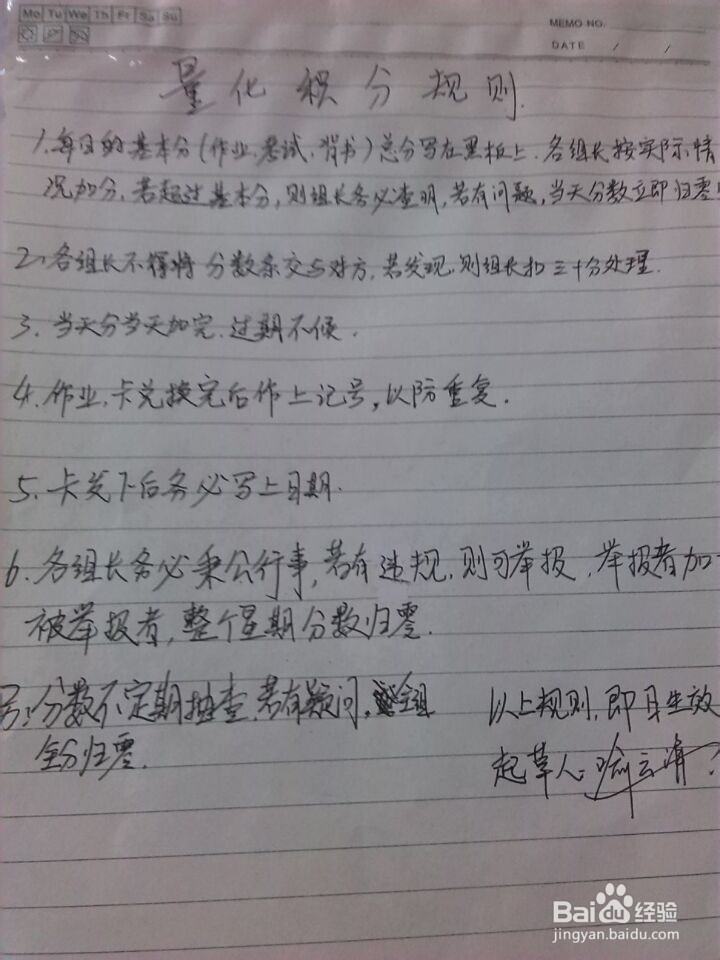 Mo Tu We Th Fr Sa Su
MEMO NO.
DATE / /
量化积分规则.
1.每日的基本分(作业.考试.背书)总分写在黑板上.各组长按实际情
况加分.若超过基本分,则组长务必查明,若有问题,当天分数立即归零!
2.各组长不得将分数条交与对方.若发现.则组长扣三十分处理.
3.当天分当天加完.过期不候.
4.作业.卡兑换完后作上记号,以防重复.
5.卡发下后务必写上日期.
6.各组长务必秉公行事,若有违规,则可举报.举报者加
被举报者,整个星期分数归零.
另:分数不定期抽查.若有疑问,全组
全分归零.
以上规则,即日生效
起草人:喻云
Baidu经验
jingyan.baidu.com